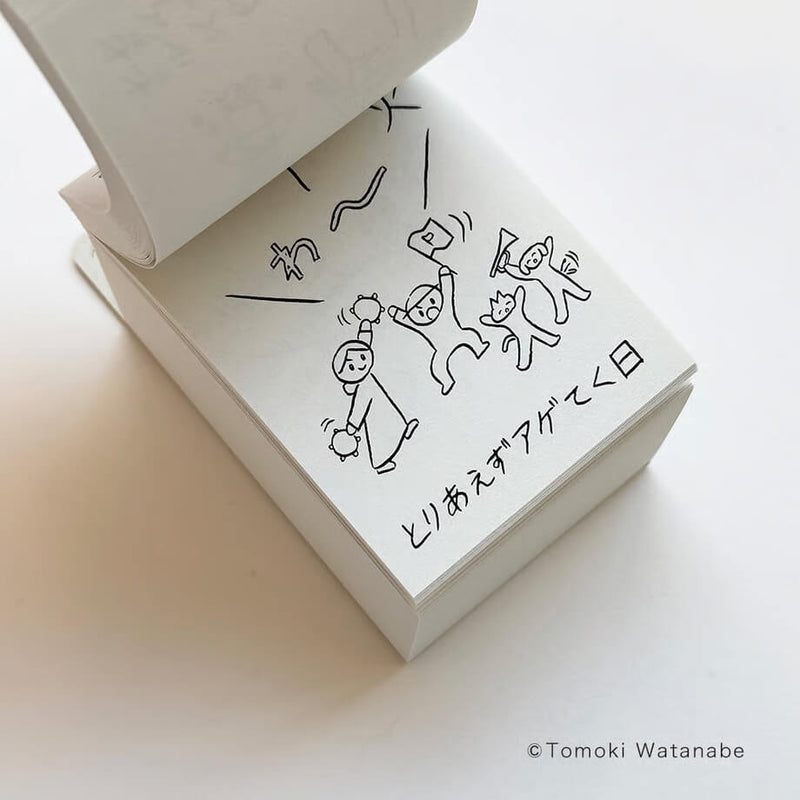 わ〜
とりあえずアゲてく日
©Tomoki Watanabe